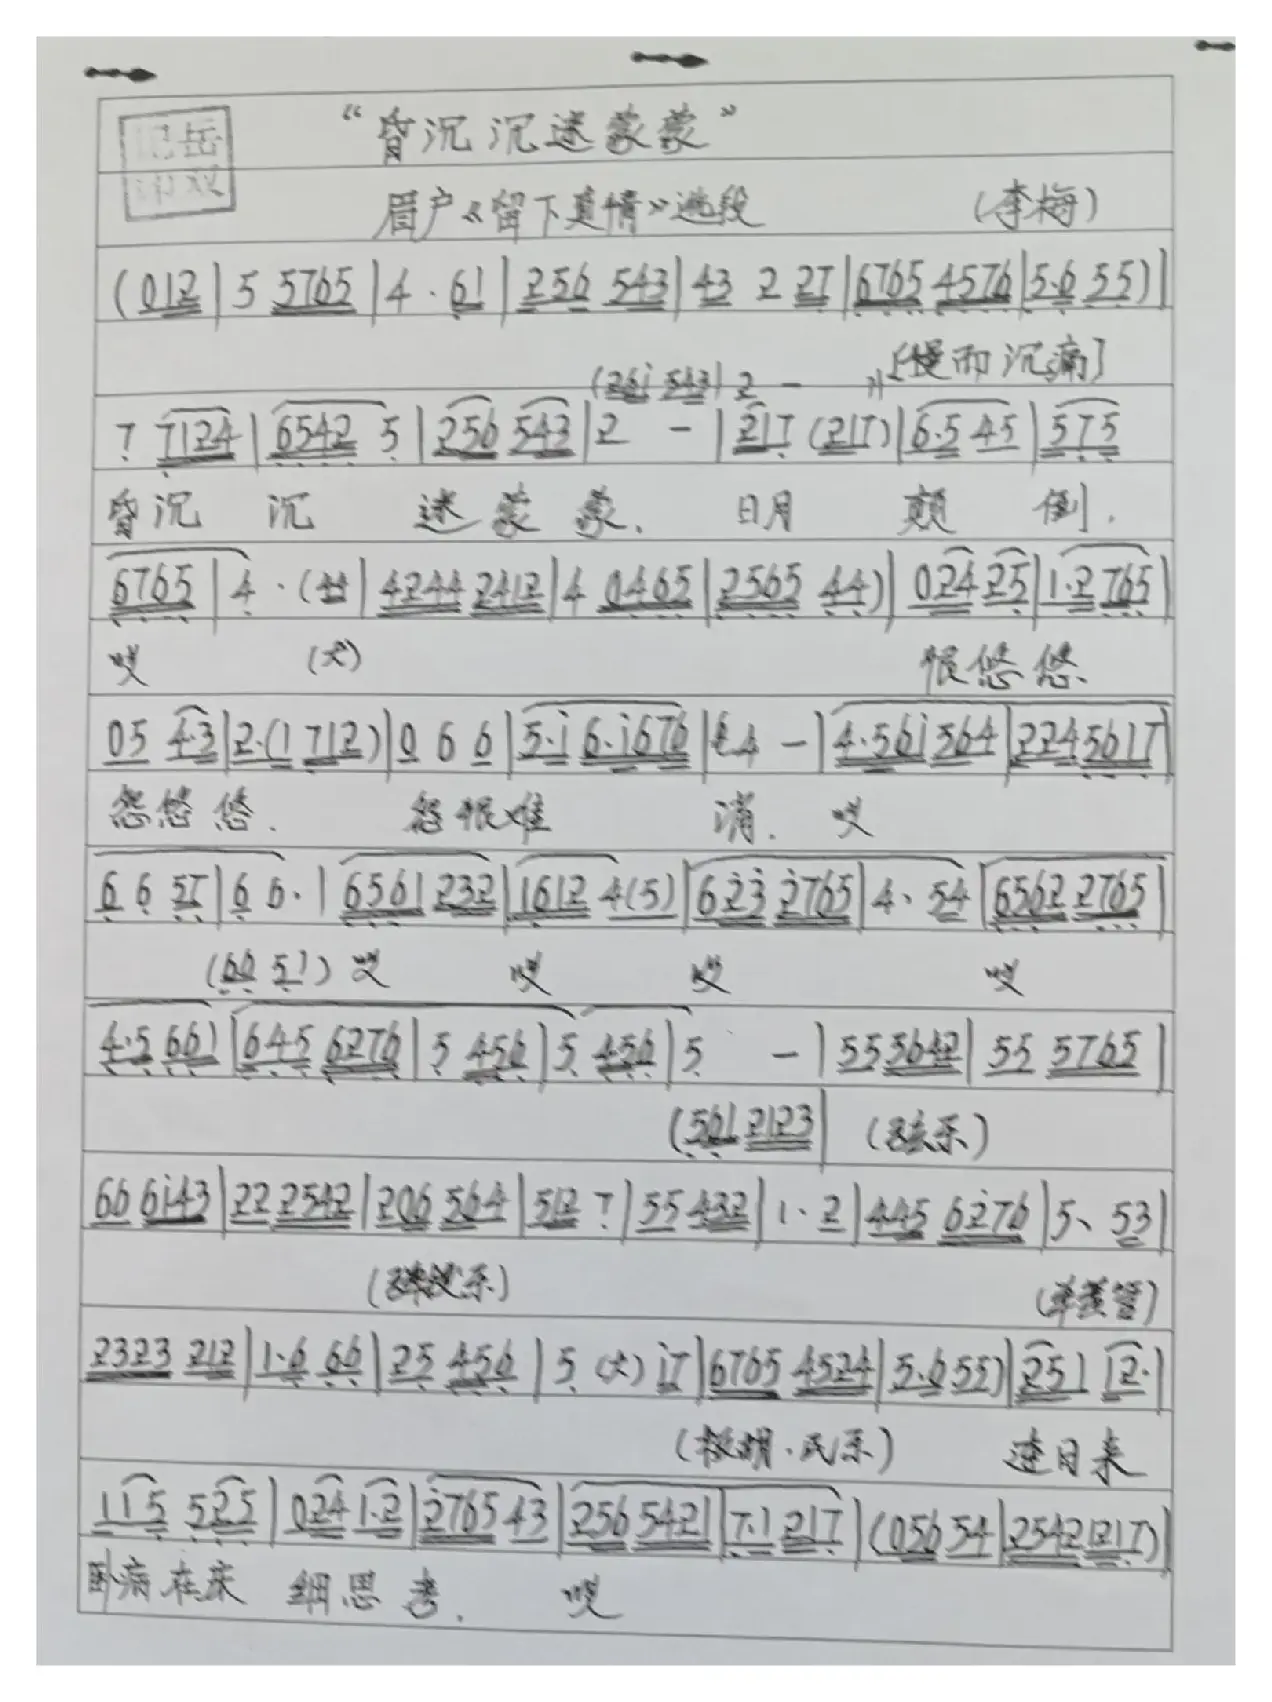 “昏沉沉迷蒙蒙”
眉户《留下真情》选段 (李梅)
(012|5 5765|4·61|256 543|43 2 27|6765 4576|5·6 55)|
(261 543|2 - )|[慢而沉痛]
7 7124|6542 5|256 543|2 -|217 (217)|6·5 45|575
昏沉 沉 迷蒙蒙. 日月 颠 倒.
6765|4·(44|4244 2412|4 0465|2565 44)|024 25|1·2 765|
哎 (大) 恨悠悠.
05 4·3|2·(1 712)|0 6 6|5·i 6·i676|4 -|4·561 564|224 5617|
怨悠悠. 怨恨难 消. 哎
6 6 57|6 6·|6561 232|1612 4(5)|623 2765|4·54|6562 2765|
(66 51) 哎 哎 哎 哎
4·5 661|645 6276|5 456|5 456|5 -|555642|55 5765|
(561 2123|
66 6i43|22 2542|206 564|512 7|55 432|1·2|445 6276|5、53|
2323 212|1·6 66|25 456|5 (大) i7|6765 4524|5·655)|251 12·|
(板胡·民乐) 连日来
115 525|024 1·2|2765 43|256 5421|7·1 217|(056 54|2542 1217)|
卧病在床 细思考. 哎